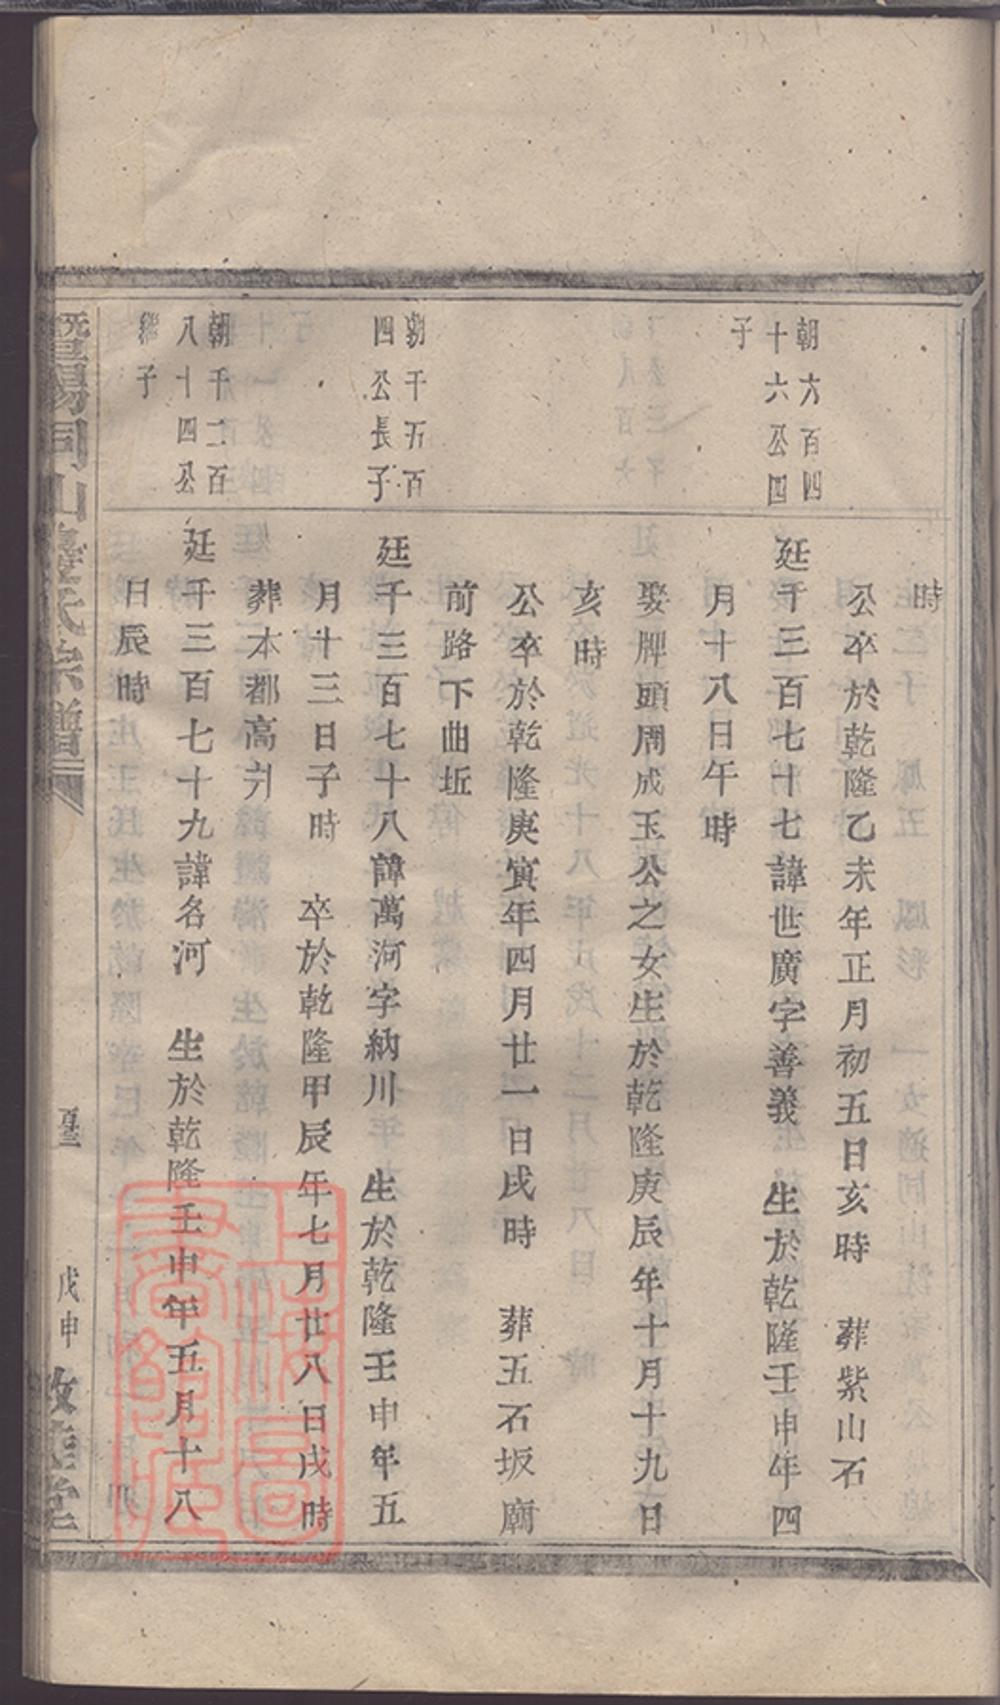 時
公卒於乾隆乙未年正月初五日亥時 葬紫山石
朝六百四
十六公四
子
廷千三百七十七諱世廣字善義 生於乾隆壬申年四
月十八日午時
娶牌頭周成玉公之女生於乾隆庚辰年十月十九日
亥時
公卒於乾隆庚寅年四月廿一日戌時 葬五石坂廟
前路下曲坵
朝千五百
四公長子
廷千三百七十八諱萬河字納川 生於乾隆壬申年五
月十三日子時 卒於乾隆甲辰年七月廿八日戌時
葬本都高力
朝千二百
八十四公
繼子
廷千三百七十九諱名河 生於乾隆壬申年五月十八
日辰時
暨陽同山邊氏宗譜
戊申
敦睦堂
上海圖書館藏